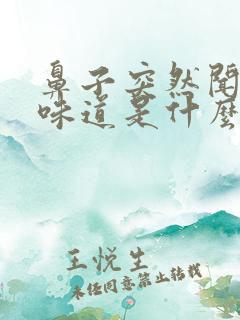 鼻子突然闻
味道是什么
王悦生
未经同意禁止转载